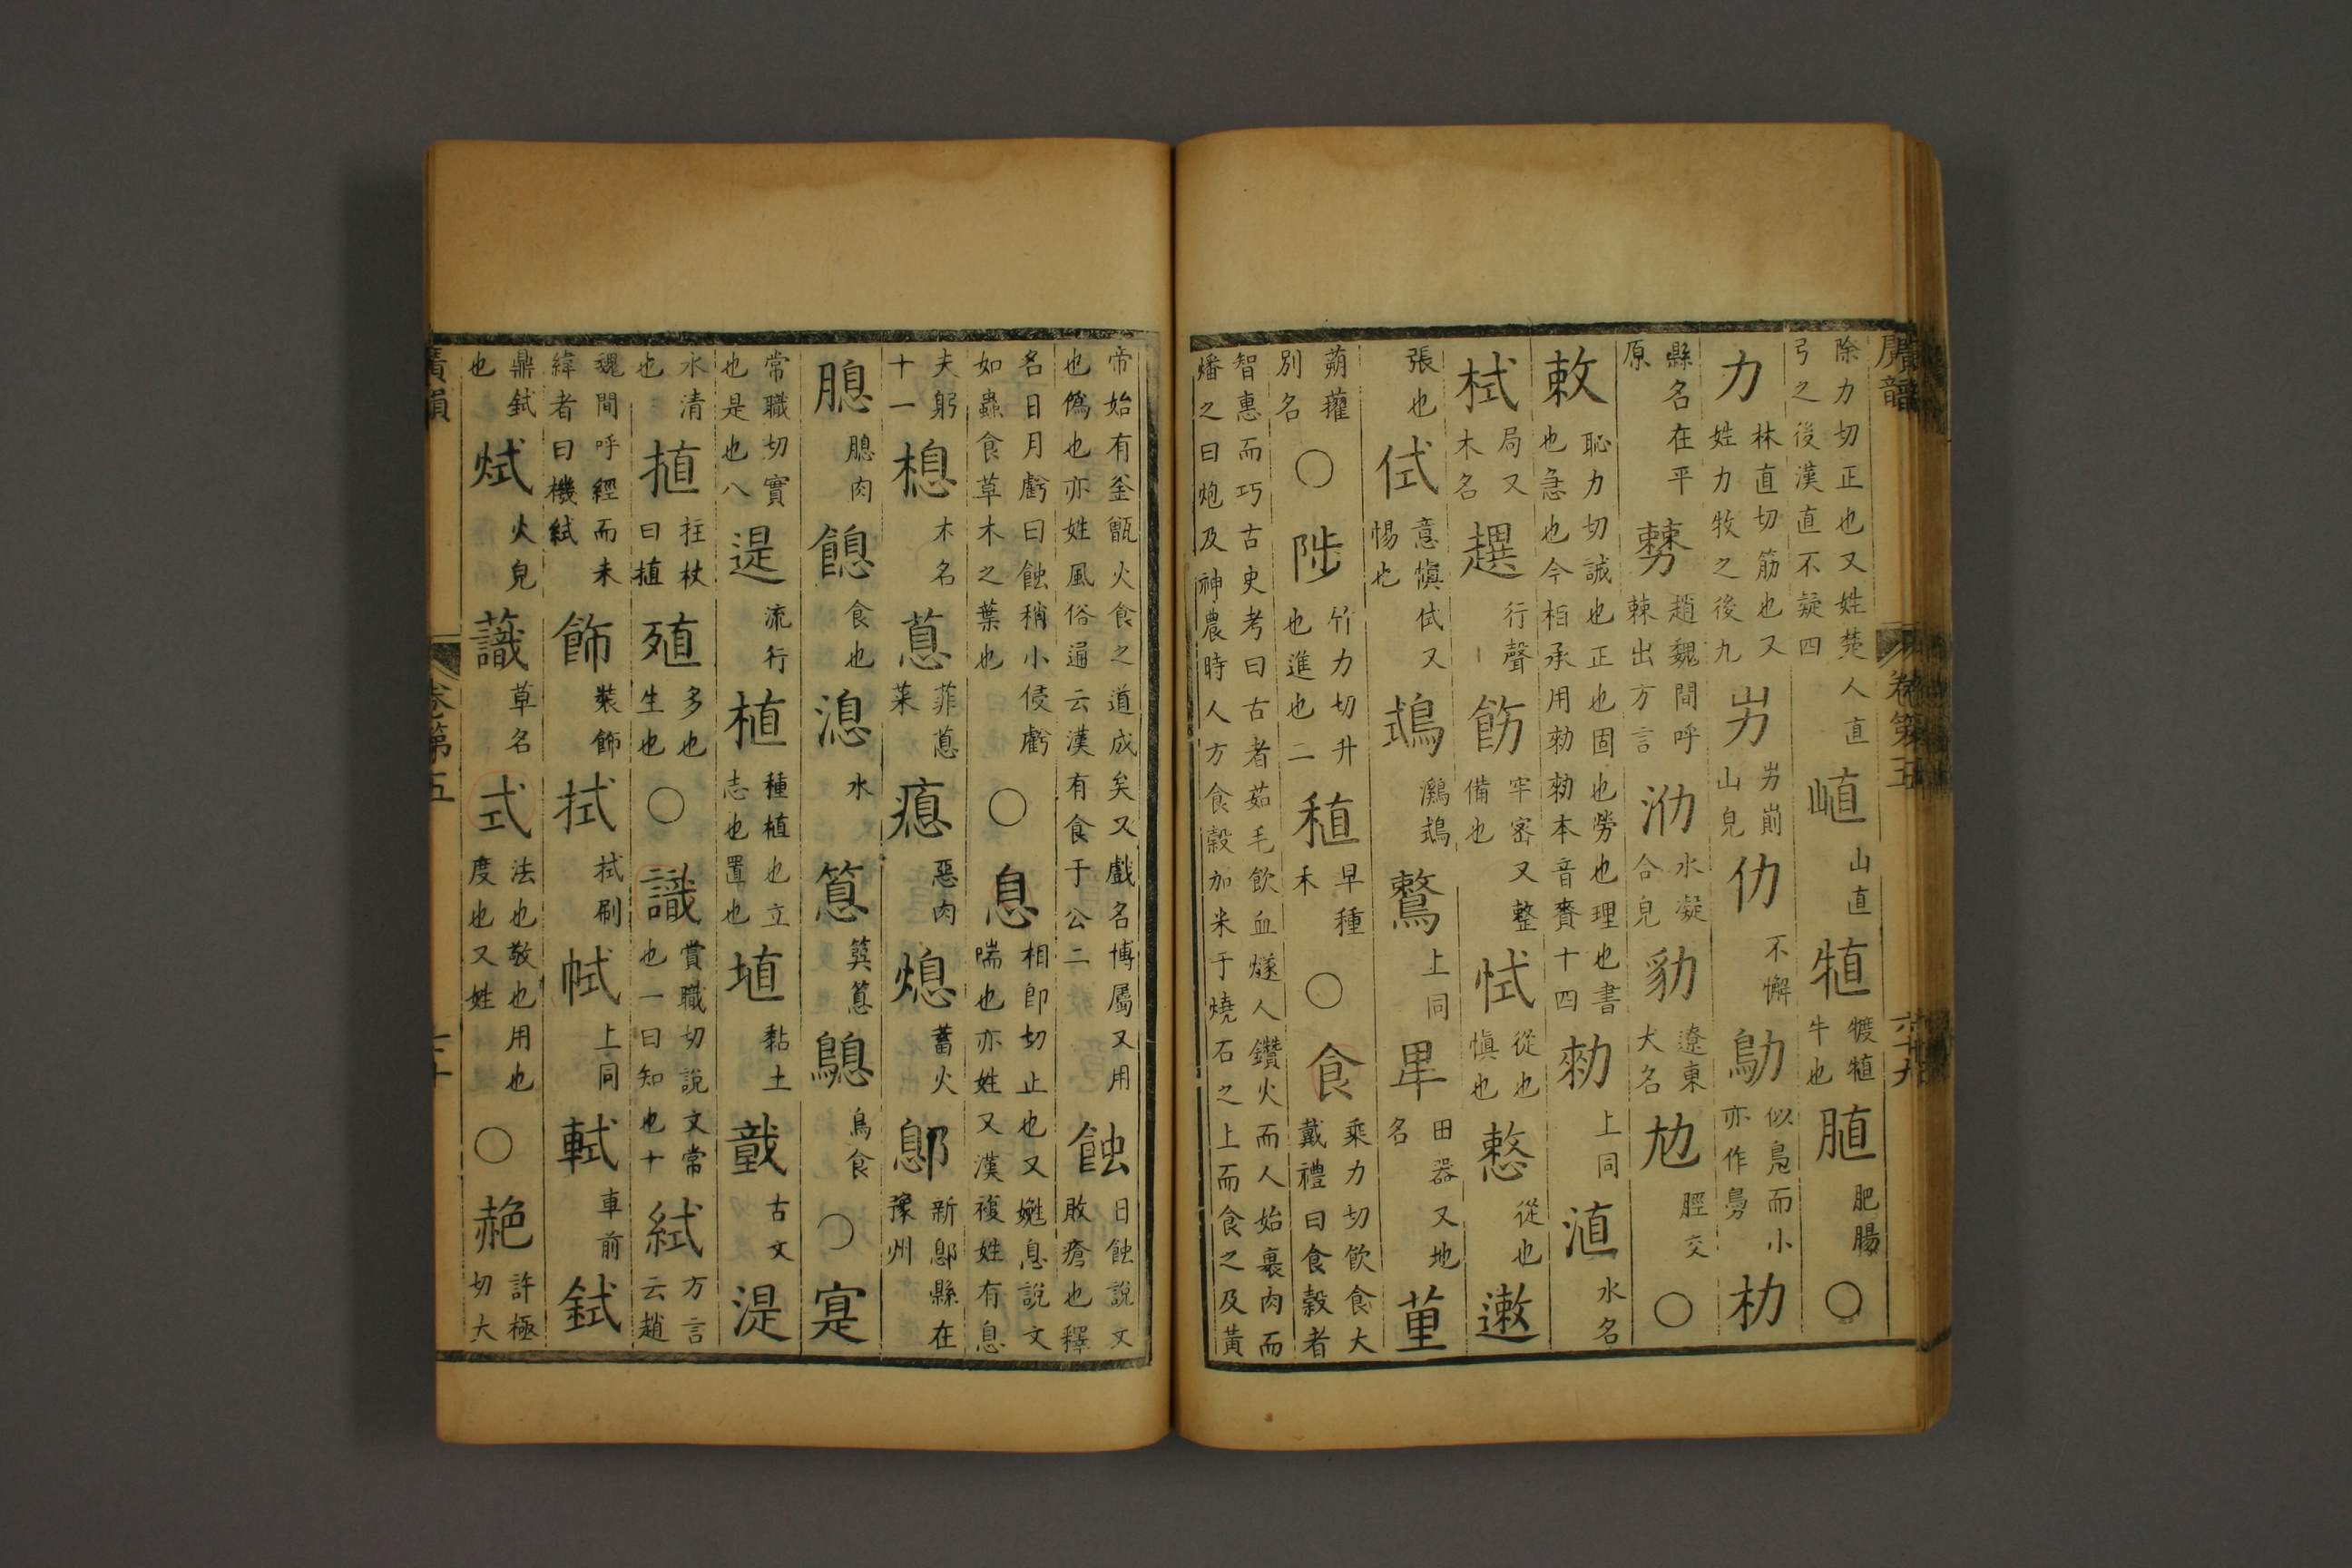 廣韻 卷第五 六十九
除力切正也又姓楚人直弓之後漢直不疑四 山直 犆 犆牛也 䐈 肥腸 〇
力 林直切筋也又姓力牧之後九 屴 屴崱山皃 仂 不懈 鳨 似鳧而小亦作 朸
縣名在平原 趙魏間呼棘出方言 泐 水凝合皃 遼東犬名 尥 脛交 〇
敕 恥力切誡也正也固也勞也理也書也急也今相承用勑勑本音賚十四 勑 上同 淔 水名
栻 局又木名 趩 行聲 飭 牢密又整備也 恜 從也慎也 慗 從也 遫
張也 侙 意慎侙又惕也 鷘 上同 田器又地名
蒴藋別名 〇 陟 竹力切升也進也二 稙 早種禾 〇 食 乘力切飲食大戴禮曰食穀者
智惠而巧古史考曰古者茹毛飲血燧人鑽火而人始裹肉而燔之曰炮及神農時人方食穀加米于燒石之上而食之及黃
帝始有釜甑火食之道成矣又戲名博屬又用也僞也亦姓風俗通云漢有食于公二 蝕 日蝕說文敗瘡也釋
名日月虧曰蝕稍小侵虧如蟲食草木之葉也 〇 息 相卽切止也又嬎息說文喘也亦姓又漢複姓有息
夫躬十一 楒 木名 蒠 菲蒠菜 瘜 惡肉 熄 蓄火 鄎 新鄎縣在豫州
膉肉 食也 水 鳥食 〇 寔
常職切實也是也八 遈 流行 植 種植也立志也置也 埴 黏土 戠 古文 湜
水清也 㨁 拄杖曰㨁 殖 多也生也 〇 識 賞職切說文常也一曰知也十 紩 方言云趙
魏間呼經而未緯者曰機紩 飾 裝飾 拭 拭刷 上同 軾 車前 鉽
鼎鉽也 烒 火皃 蘵 草名 式 法也敬也用也度也又姓 〇 赩 許極切大
廣韻 卷第五 七十